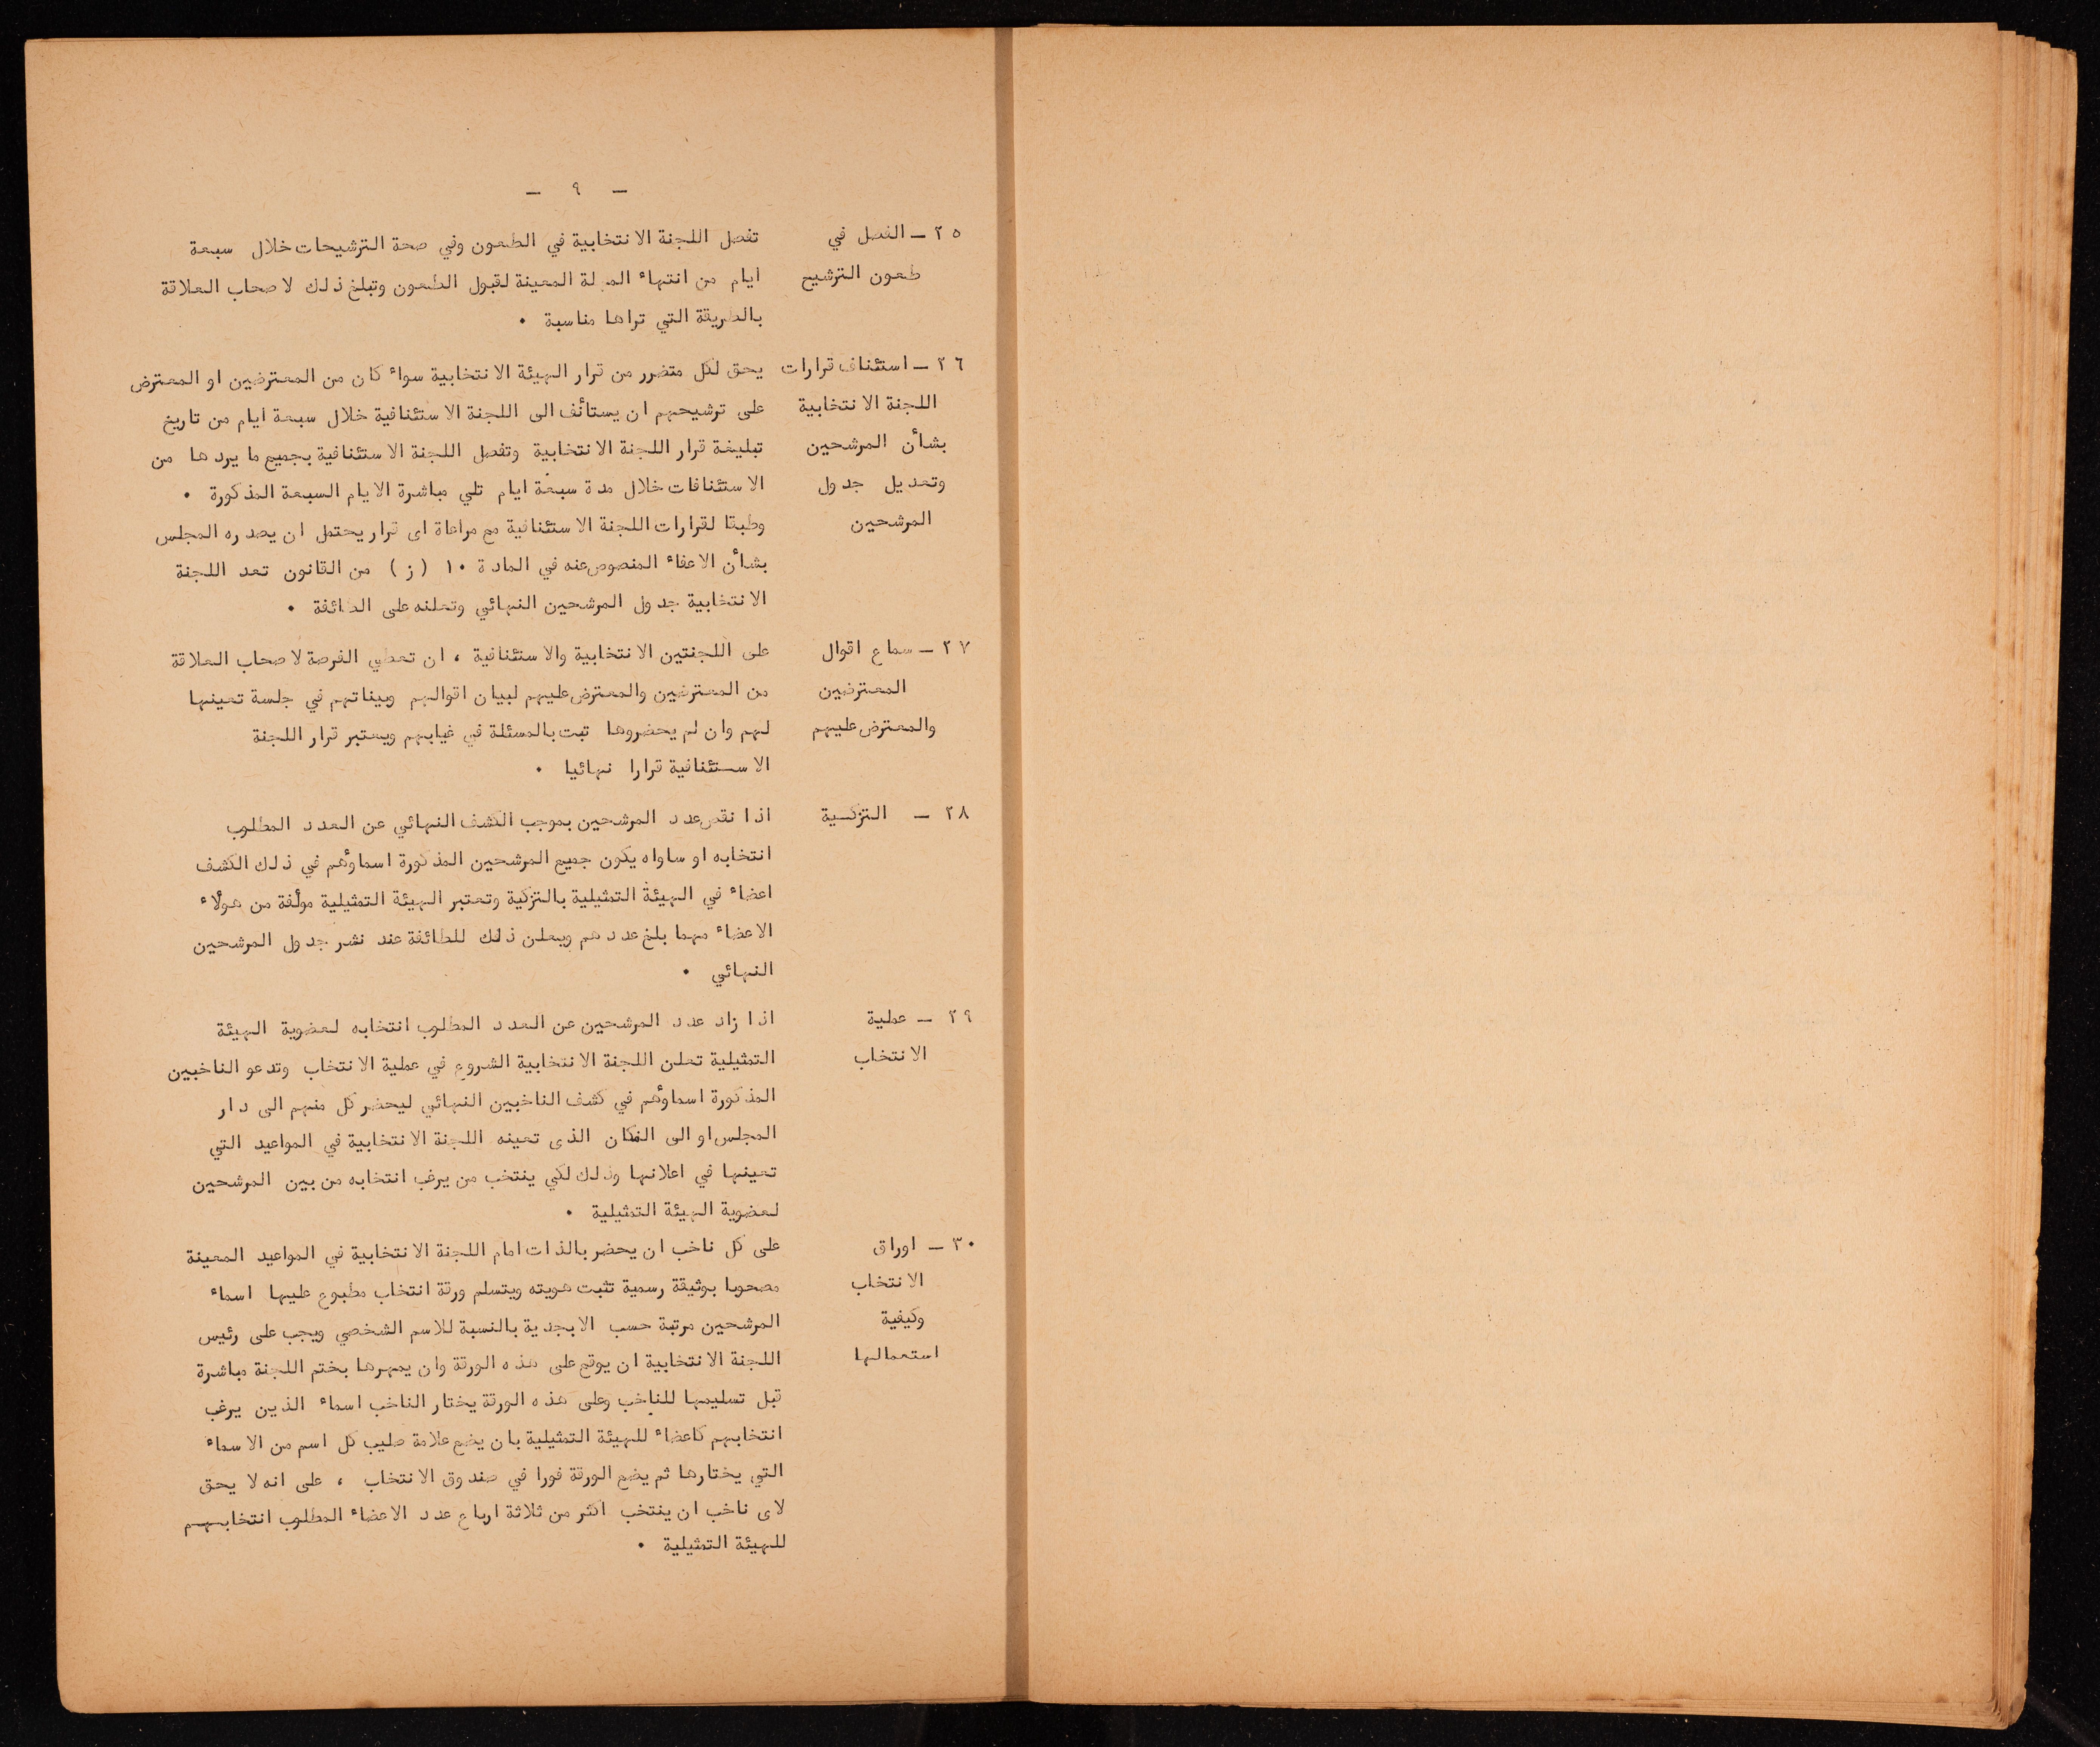 - ٩ -
٢٥ - الفصل في تفصل اللجنة الانتخابية في الطعون وفي صحة الترشيحات خلال سبعة
طعون الترشيح ايام من انتهاء المهلة المعينة لقبول الطعون وتبلغ ذلك لاصحاب العلاقة
بالطريقة التي تراها مناسبة .
٢٦ - استئناف قرارات يحق لكل متضرر من قرار الهيئة الانتخابية سواء كان من المعترضين او المعترض
اللجنة الانتخابية على ترشيحهم ان يستأنف الى اللجنة الاستئنافية خلال سبعة ايام من تاريخ
بشأن المرشحين تبليغة قرار اللجنة الانتخابية وتفصل اللجنة الاستئنافية بجميع ما يردها من
وتعديل جدول الاستئنافات خلال مدة سبعة ايام تلي مباشرة الايام السبعة المذكورة .
المرشحين وطبقا لقرارات اللجنة الاستئنافية مع مراعاة اى قرار يحتمل ان يصدره المجلس
بشأن الاعفاء المنصوص عنه في المادة ١٠ (ز) من القانون تعد اللجنة
الانتخابية جدول المرشحين النهائي وتعلنه على الطائفة .
٢٧ - سماع اقوال على اللجنتين الانتخابية والاستئنافية ، ان تعطي الفرصة لاصحاب العلاقة
المعترضين من المعترضين والمعترض عليهم لبيان اقوالهم وبيناتهم في جلسة تعينها
والمعترض عليهم لهم وان لم يحضروها تبت بالمسئلة في غيابهم ويعتبر قرار اللجنة
الاستئنافية قرارا نهائيا .
٢٨ - التزكية اذا نقص عدد المرشحين بموجب الكشف النهائي عن العدد المطلوب
انتخابه او ساواه يكون جميع المرشحين المذكورة اسماؤهم في ذلك الكشف
اعضاء في الهيئة التمثيلية بالتزكية وتعتبر الهيئة التمثيلية مولفة من هولاء
الاعضاء مهما بلغ عددهم ويعلن ذلك للطائفة عند نشر جدول المرشحين
النهائي .
٢٩ - عملية اذا زاد عدد المرشحين عن العدد المطلوب انتخابه لعضوية الهيئة
الانتخاب التمثيلية تعلن اللجنة الانتخابية الشروع في عملية الانتخاب وتدعو الناخبين
المذكورة اسماؤهم في كشف الناخبين النهائي ليحضر كل منهم الى دار
المجلس او الى المكان الذى تعينه اللجنة الانتخابية في المواعيد التي
تعينها في اعلانها وذلك لكي ينتخب من يرغب انتخابه من بين المرشحين
لعضوية الهيئة التمثيلية .
٣٠ - اوراق على كل ناخب ان يحضر بالذات امام اللجنة الانتخابية في المواعيد المعينة
الانتخاب مصحوبا بوثيقة رسمية تثبت هويته ويتسلم ورقة انتخاب مطبوع عليها اسماء
وكيفية المرشحين مرتبة حسب الابجدية بالنسبة للاسم الشخصي ويجب على رئيس
استعمالها اللجنة الانتخابية ان يوقع على هذه الورقة وان يمهرها بختم اللجنة مباشرة
قبل تسليمها للناخب وعلى هذه الورقة يختار الناخب اسماء الذين يرغب
انتخابهم كاعضاء للهيئة التمثيلية بان يضع علامة صليب كل اسم من الاسماء
التي يختارها ثم يضع الورقة فورا في صندوق الانتخاب ، على انه لا يحق
لاى ناخب ان ينتخب اكثر من ثلاثة ارباع عدد الاعضاء المطلوب انتخابهم
للهيئة التمثيلية .